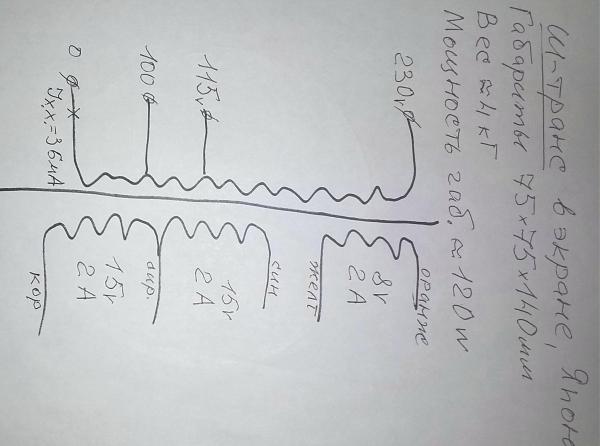 Ш-транс в экране, Япон
Габариты 75х75х140мм
Вес ≈ 4 кг
Мощность габ. ≈ 120 W
230v
115v
100
0
Iх.х.=36мА
оранже
8v
2A
желт
син
15v
2A
сир.
15v
2A
кор